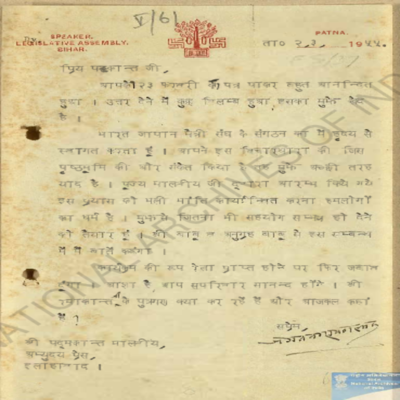 V/6/
SPEAKER,
LEGISLATIVE ASSEMBLY,
BIHAR.
PATNA.
ता० २.३. १९५५.
प्रिय पद्मकान्त जी,
आपके २३ फरवरी का पत्र पाकर बहुत आनन्दित
हुआ । उत्तर देने में कुछ विलम्ब हुआ इसका मुझे खेद
है ।
भारत जापान मैत्री संघ के संगठन का मैं हृदय से
स्वागत करता हूँ । आपने इस विचारधारा की जिस
पृष्ठभूमि की ओर संकेत किया है वह मुझे अच्छी तरह
याद है । पूज्य मालवीय जी के द्वारा आरम्भ किये गये
इस प्रयास को भली भाँति कार्यान्वित करना हमलोगों
का धर्म है । मुझसे जितना भी सहयोग सम्भव हो देने
को तैयार हूँ । श्री बाबू अनुग्रह बाबू से इस सम्बन्ध
में मैं बातें करूंगा ।
कार्यक्रम की रूप रेखा प्राप्त होने पर फिर जवाब
दूंगा । आशा है, आप सपरिवार सानन्द होंगे । श्री
के पुत्रगण क्या कर रहे हैं और आजकल कहां
हैं ?
सप्रेम
श्री पद्मकान्त मालवीय,
अभ्युदय प्रेस,
इलाहाबाद ।
NATIONAL ARCHIVES OF INDIA